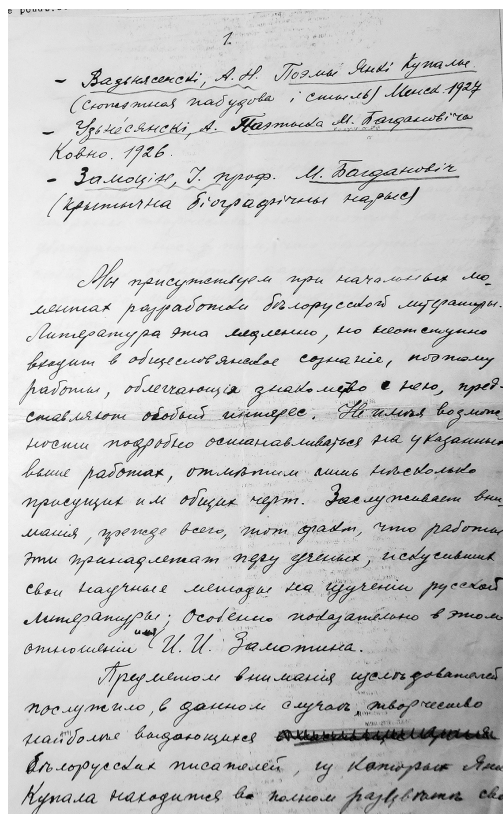 1.
– Вазьнясенскі, А. Н. Поэмы Янкі Купалы
(сюжэтная пабудова і стыль) Менск. 1927
– Узьнёсянскі, А. Паэтыка М. Багдановіча
Ковно. 1926.
– Замоцін, І. проф. М. Багдановіч
(крытычна біографічны нарыс)
Мы присутствуем при начальных мо-
ментах разработки бѣлорусской литературы.
Литература эта медленно, но неотступно
входит в общеславянское сознаніе, поэтому
работы, облегчающія знакомство с нею, пред-
ставляют особый интерес. Не имѣя возмож-
ности подробно останавливаться на указанных
выше работах, отмѣтим лишь нѣсколько
присущих им общих черт. Заслуживает вни-
манія, прежде всего, тот факт, что работы
эти принадлежат перу ученых, искусивших
свои научные методы на изученіи русской
литературы; особенно показательно в этом
отношеніи имя И. И. Замотина.
Предметом вниманія изслѣдователей
послужило, в данном случаѣ, творчество
наиболѣе выдающихся
бѣлорусских писателей, из которых Янка
Купала находится в полном разцвѣтѣ сво